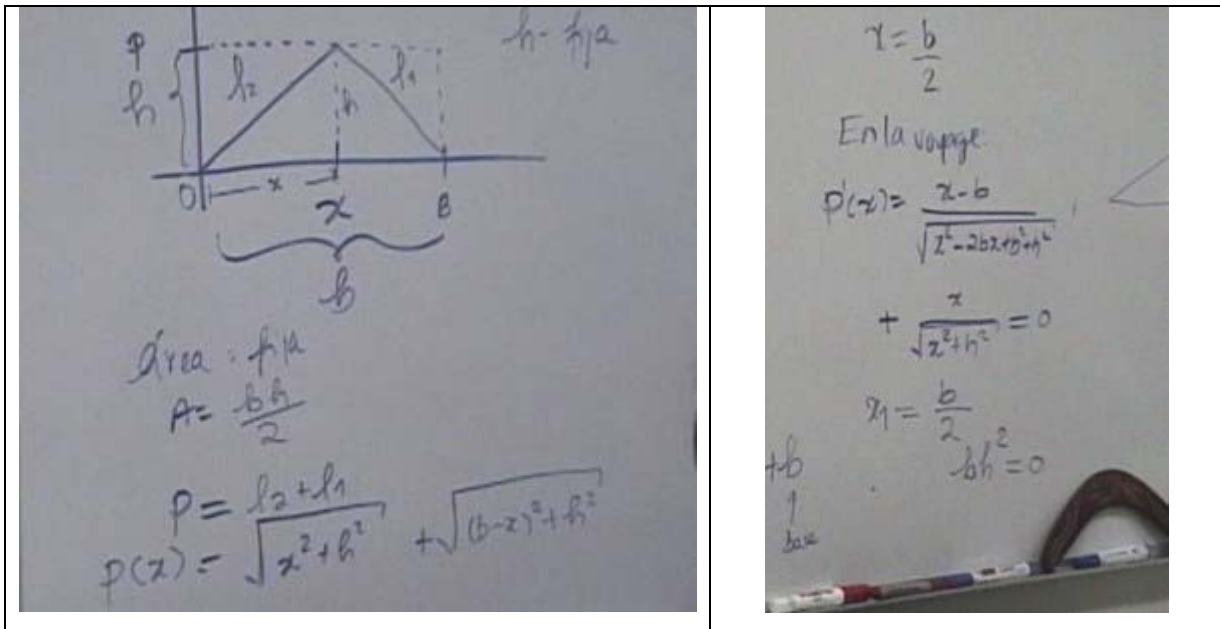 h - fija
P
h
l₂
l₁
h
O
x
x
B
b
Área : fija
A = bh/2
P = l₂ + l₁
P(x) = √(x² + h²) + √((b-x)² + h²)
x = b/2
En la voyage
P'(x) = (x-b)/√(x² - 2bx + b² + h²)
+ x/√(x² + h²) = 0
x₁ = b/2
bh² = 0
+b
base